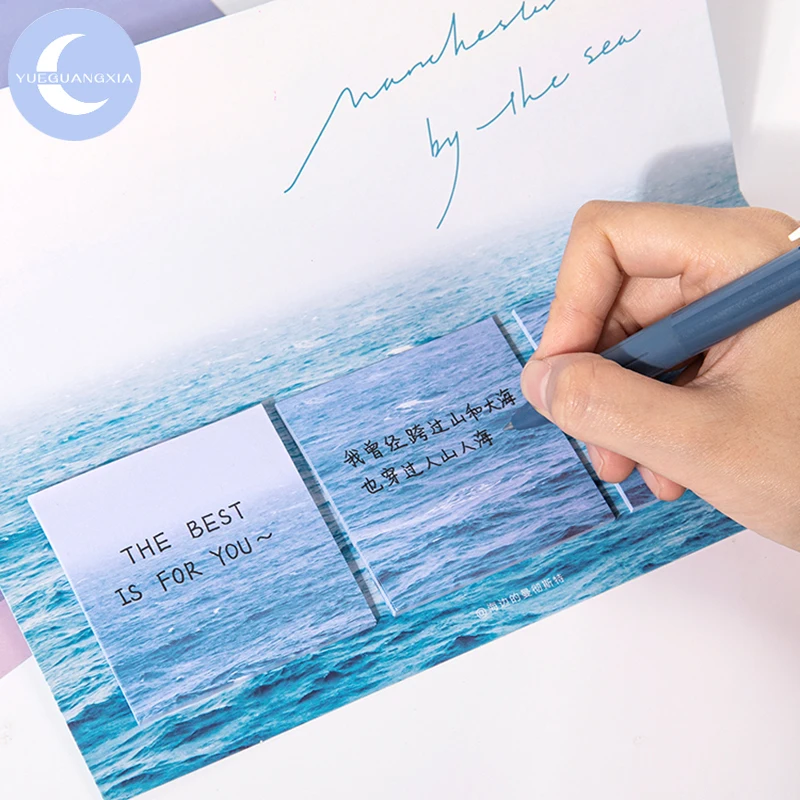 YUEGUANGXIA
manchester
by the sea
我曾经跨过山和大海
也穿过人山人海
THE BEST
IS FOR YOU~
@海边的曼彻斯特